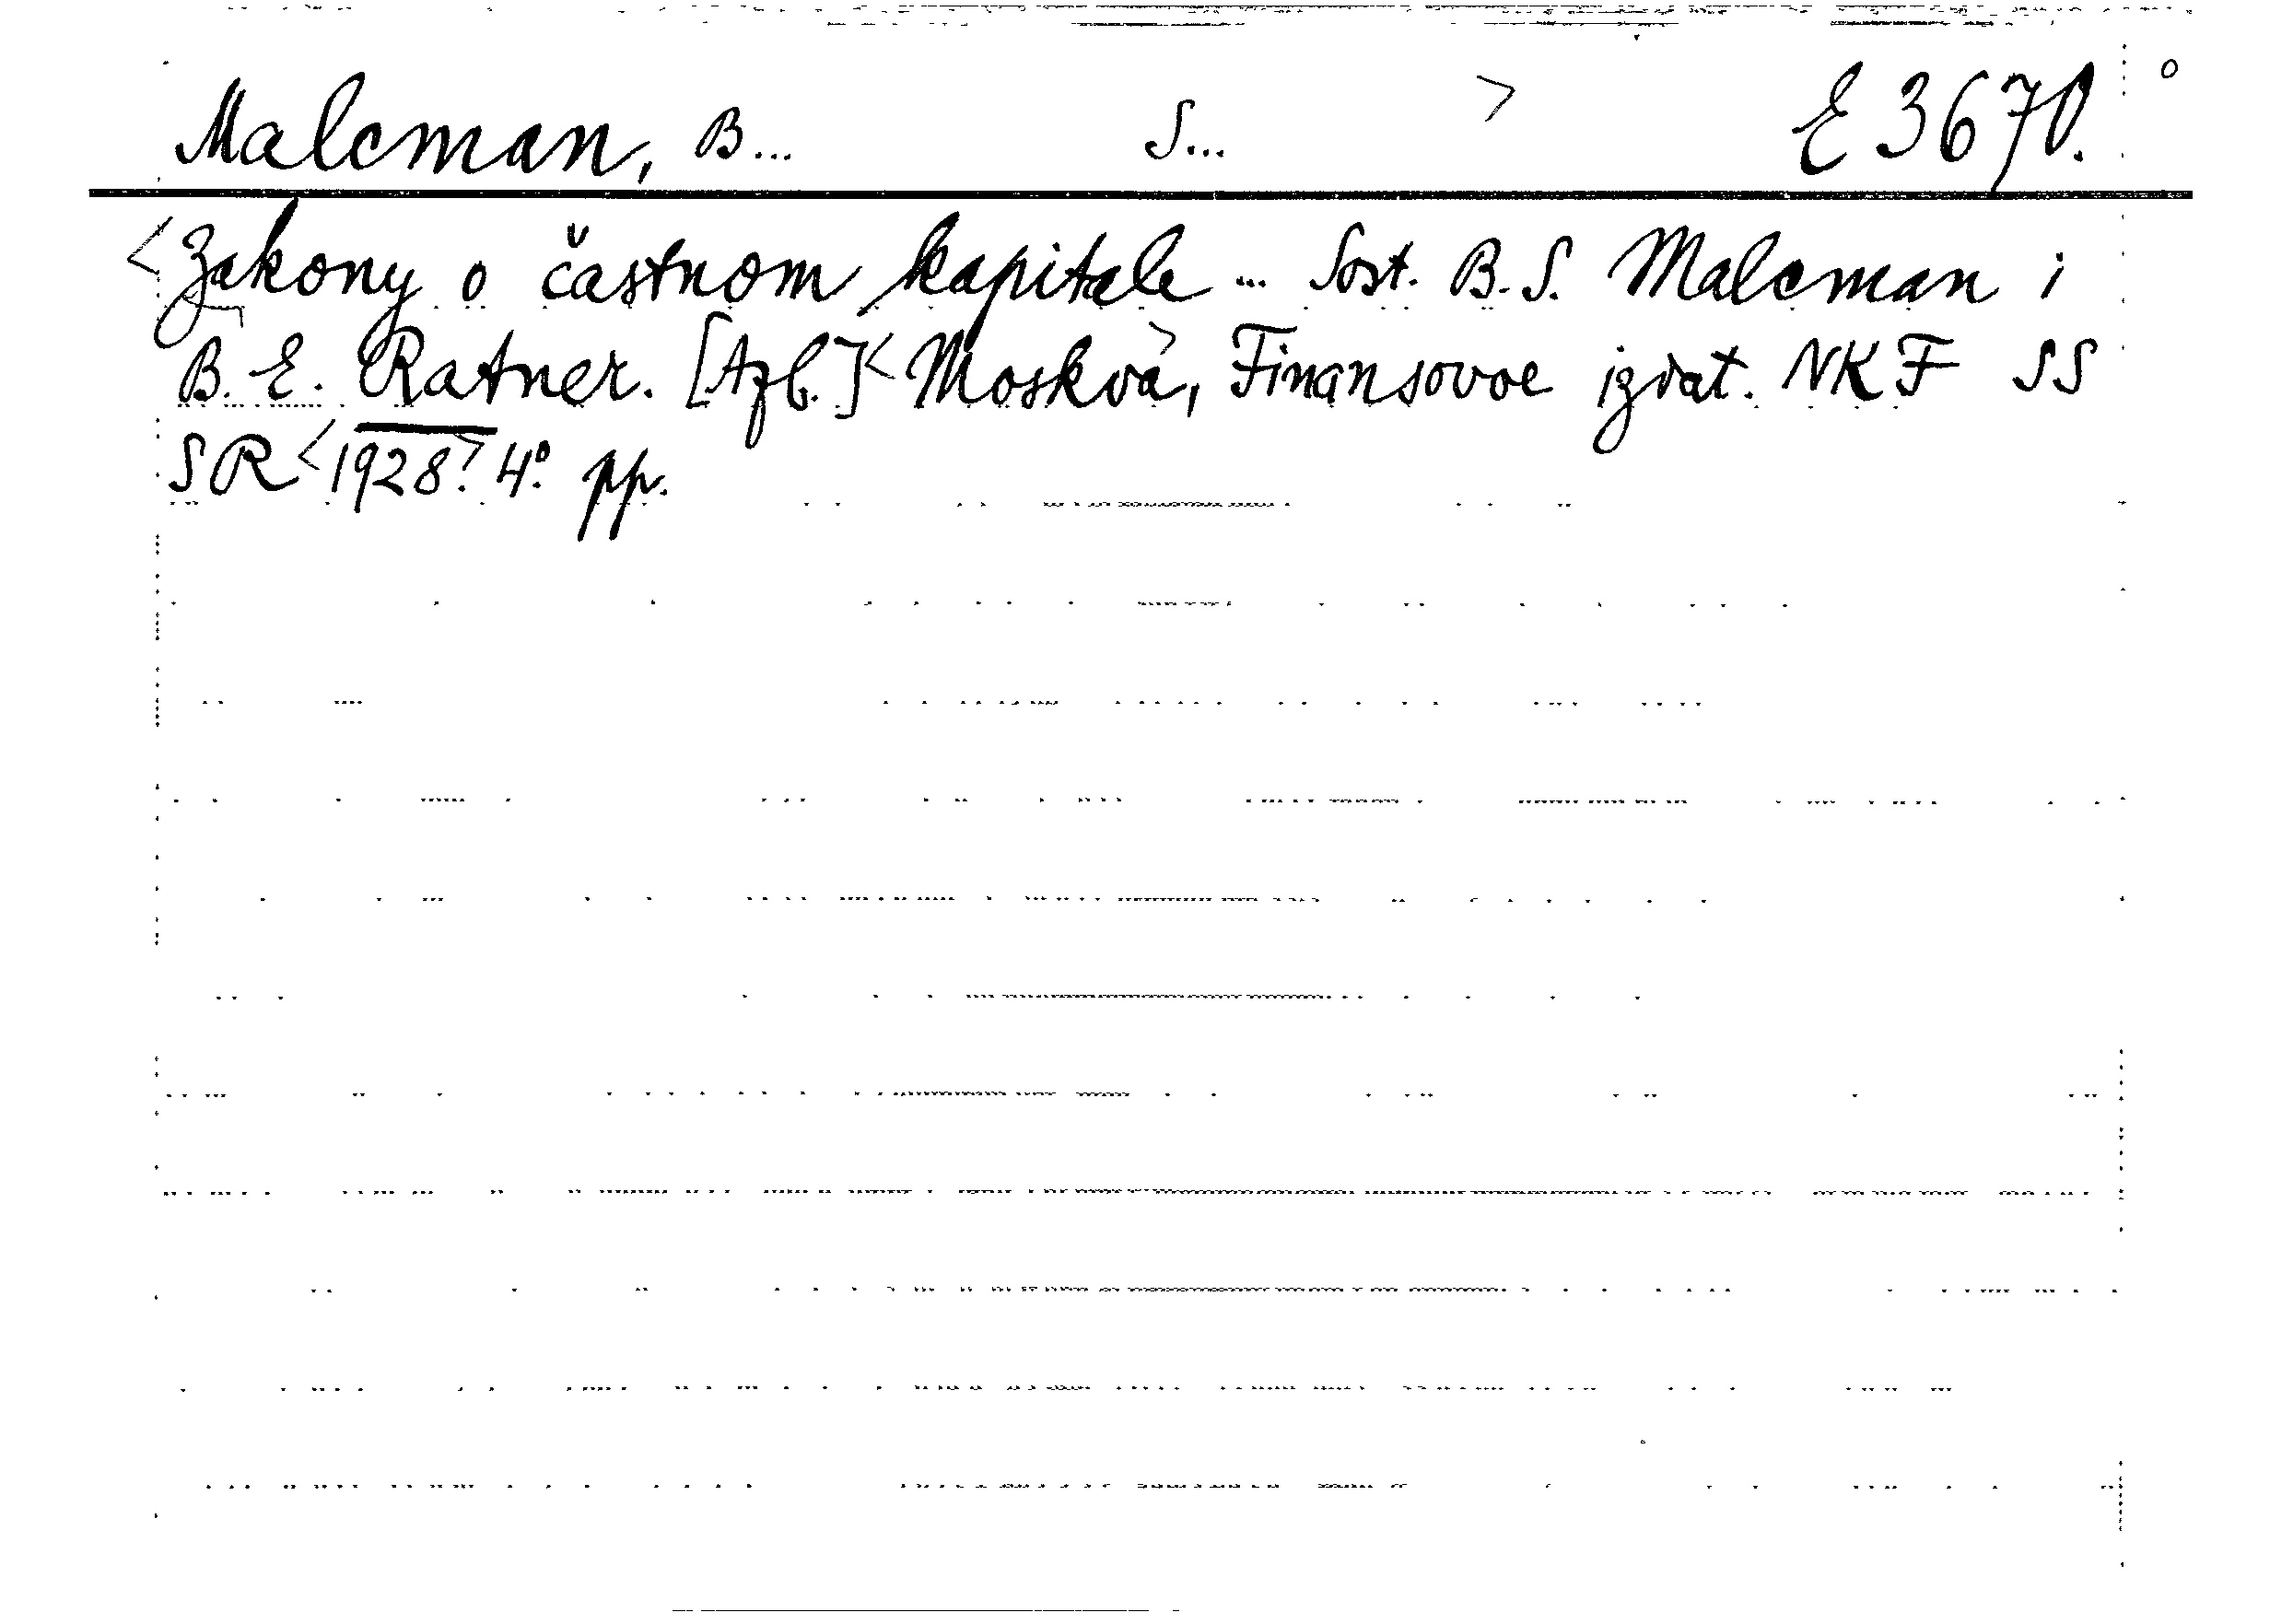 Malcman, B... S... > E 3670.
<Zakony o častnom kapitale ... Sost. B. S. Malcman i
B. E. Ratner. [Azb.] <Moskva>, Finansovoe izdat. NKF SS
SR <1928>. 4° pp.